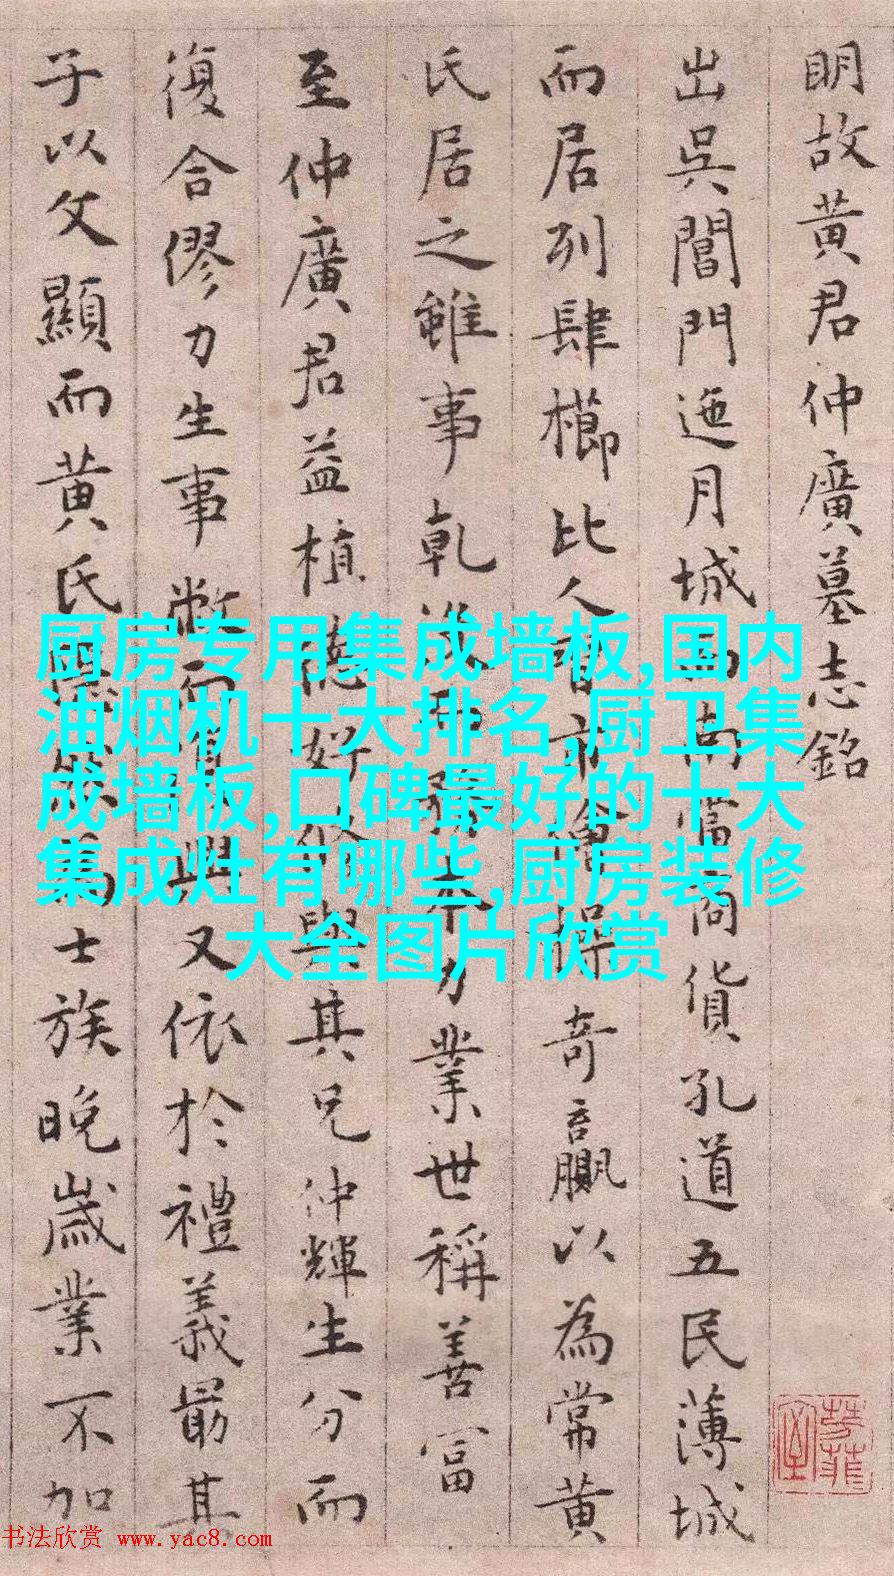 明故黄君仲廣墓志銘
出吳閶門迤月城而南當商貨孔道五民薄城
而居列肆櫛比人習市儈操奇贏以為常黄
氏居之雖事乾没不力業世稱善富
至仲廣君益植德好修與其兄仲輝生分而
復合僇力生事敝而復興又依於禮義最其
子以文顯而黄氏為士族晚歲業不加
厨房专用集成墙板,国内
油烟机十大排名,厨卫集
成墙板,口碑最好的十大
集成灶有哪些,厨房装修
大全图片欣赏
书法欣赏 www.yac8.com